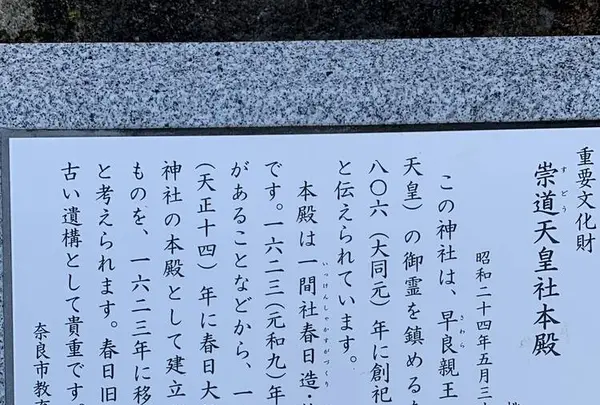 重要文化財
崇道天皇社本殿
すどう
昭和二十四年五月三
この神社は、早良親王
さわら
天皇)の御霊を鎮める
八〇六(大同元)年に創祀
と伝えられています。
本殿は一間社春日造・
いっけんしゃかすがづくり
です。一六二三(元和九)年
があることなどから、一
(天正十四)年に春日大
神社の本殿として建立
ものを、一六二三年に移
と考えられます。春日旧
古い遺構として貴重です。
奈良市教